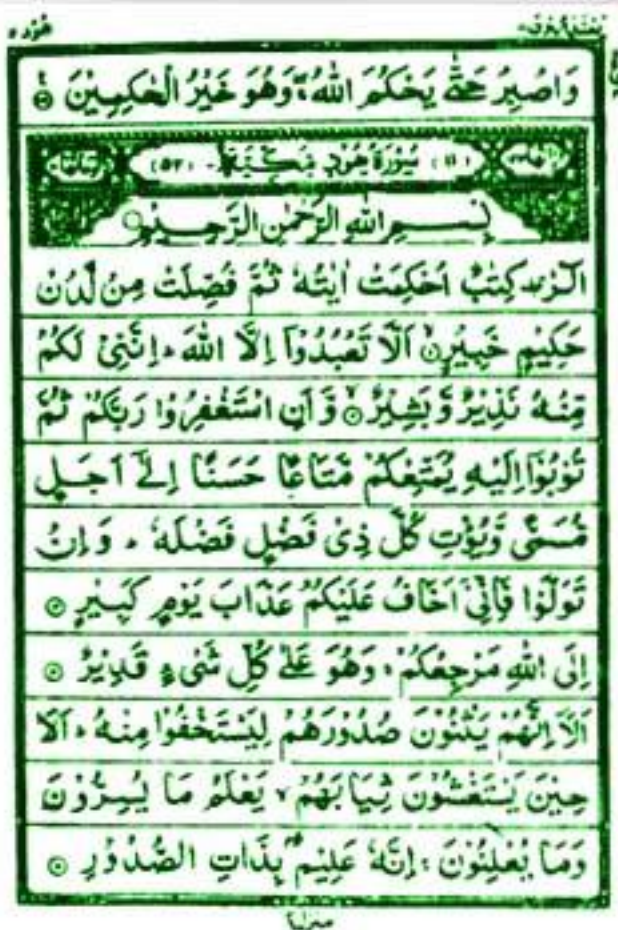 هُوْد ١١
وَاصْبِرْ حَتّٰى يَحْكُمَ اللّٰهُ ۚ وَهُوَ خَيْرُ الْحٰكِمِيْنَ
(١١) سُوْرَةُ هُوْدٍ مَكِّيَّةٌ (٥٢)
بِسْمِ اللّٰهِ الرَّحْمٰنِ الرَّحِيْمِ
الٓرٰ ۚ كِتٰبٌ اُحْكِمَتْ اٰيٰتُهٗ ثُمَّ فُصِّلَتْ مِنْ لَّدُنْ
حَكِيْمٍ خَبِيْرٍ ۙ اَلَّا تَعْبُدُوْٓا اِلَّا اللّٰهَ ؕ اِنَّنِيْ لَكُمْ
مِّنْهُ نَذِيْرٌ وَّبَشِيْرٌ ۙ وَّاَنِ اسْتَغْفِرُوْا رَبَّكُمْ ثُمَّ
تُوْبُوْٓا اِلَيْهِ يُمَتِّعْكُمْ مَّتَاعًا حَسَنًا اِلٰٓى اَجَلٍ
مُّسَمًّى وَّيُؤْتِ كُلَّ ذِيْ فَضْلٍ فَضْلَهٗ ؕ وَاِنْ
تَوَلَّوْا فَاِنِّيْٓ اَخَافُ عَلَيْكُمْ عَذَابَ يَوْمٍ كَبِيْرٍ
اِلَى اللّٰهِ مَرْجِعُكُمْ ۚ وَهُوَ عَلٰى كُلِّ شَيْءٍ قَدِيْرٌ
اَلَآ اِنَّهُمْ يَثْنُوْنَ صُدُوْرَهُمْ لِيَسْتَخْفُوْا مِنْهُ ؕ اَلَا
حِيْنَ يَسْتَغْشُوْنَ ثِيَابَهُمْ ۙ يَعْلَمُ مَا يُسِرُّوْنَ
وَمَا يُعْلِنُوْنَ ۚ اِنَّهٗ عَلِيْمٌۢ بِذَاتِ الصُّدُوْرِ
منزل ٣